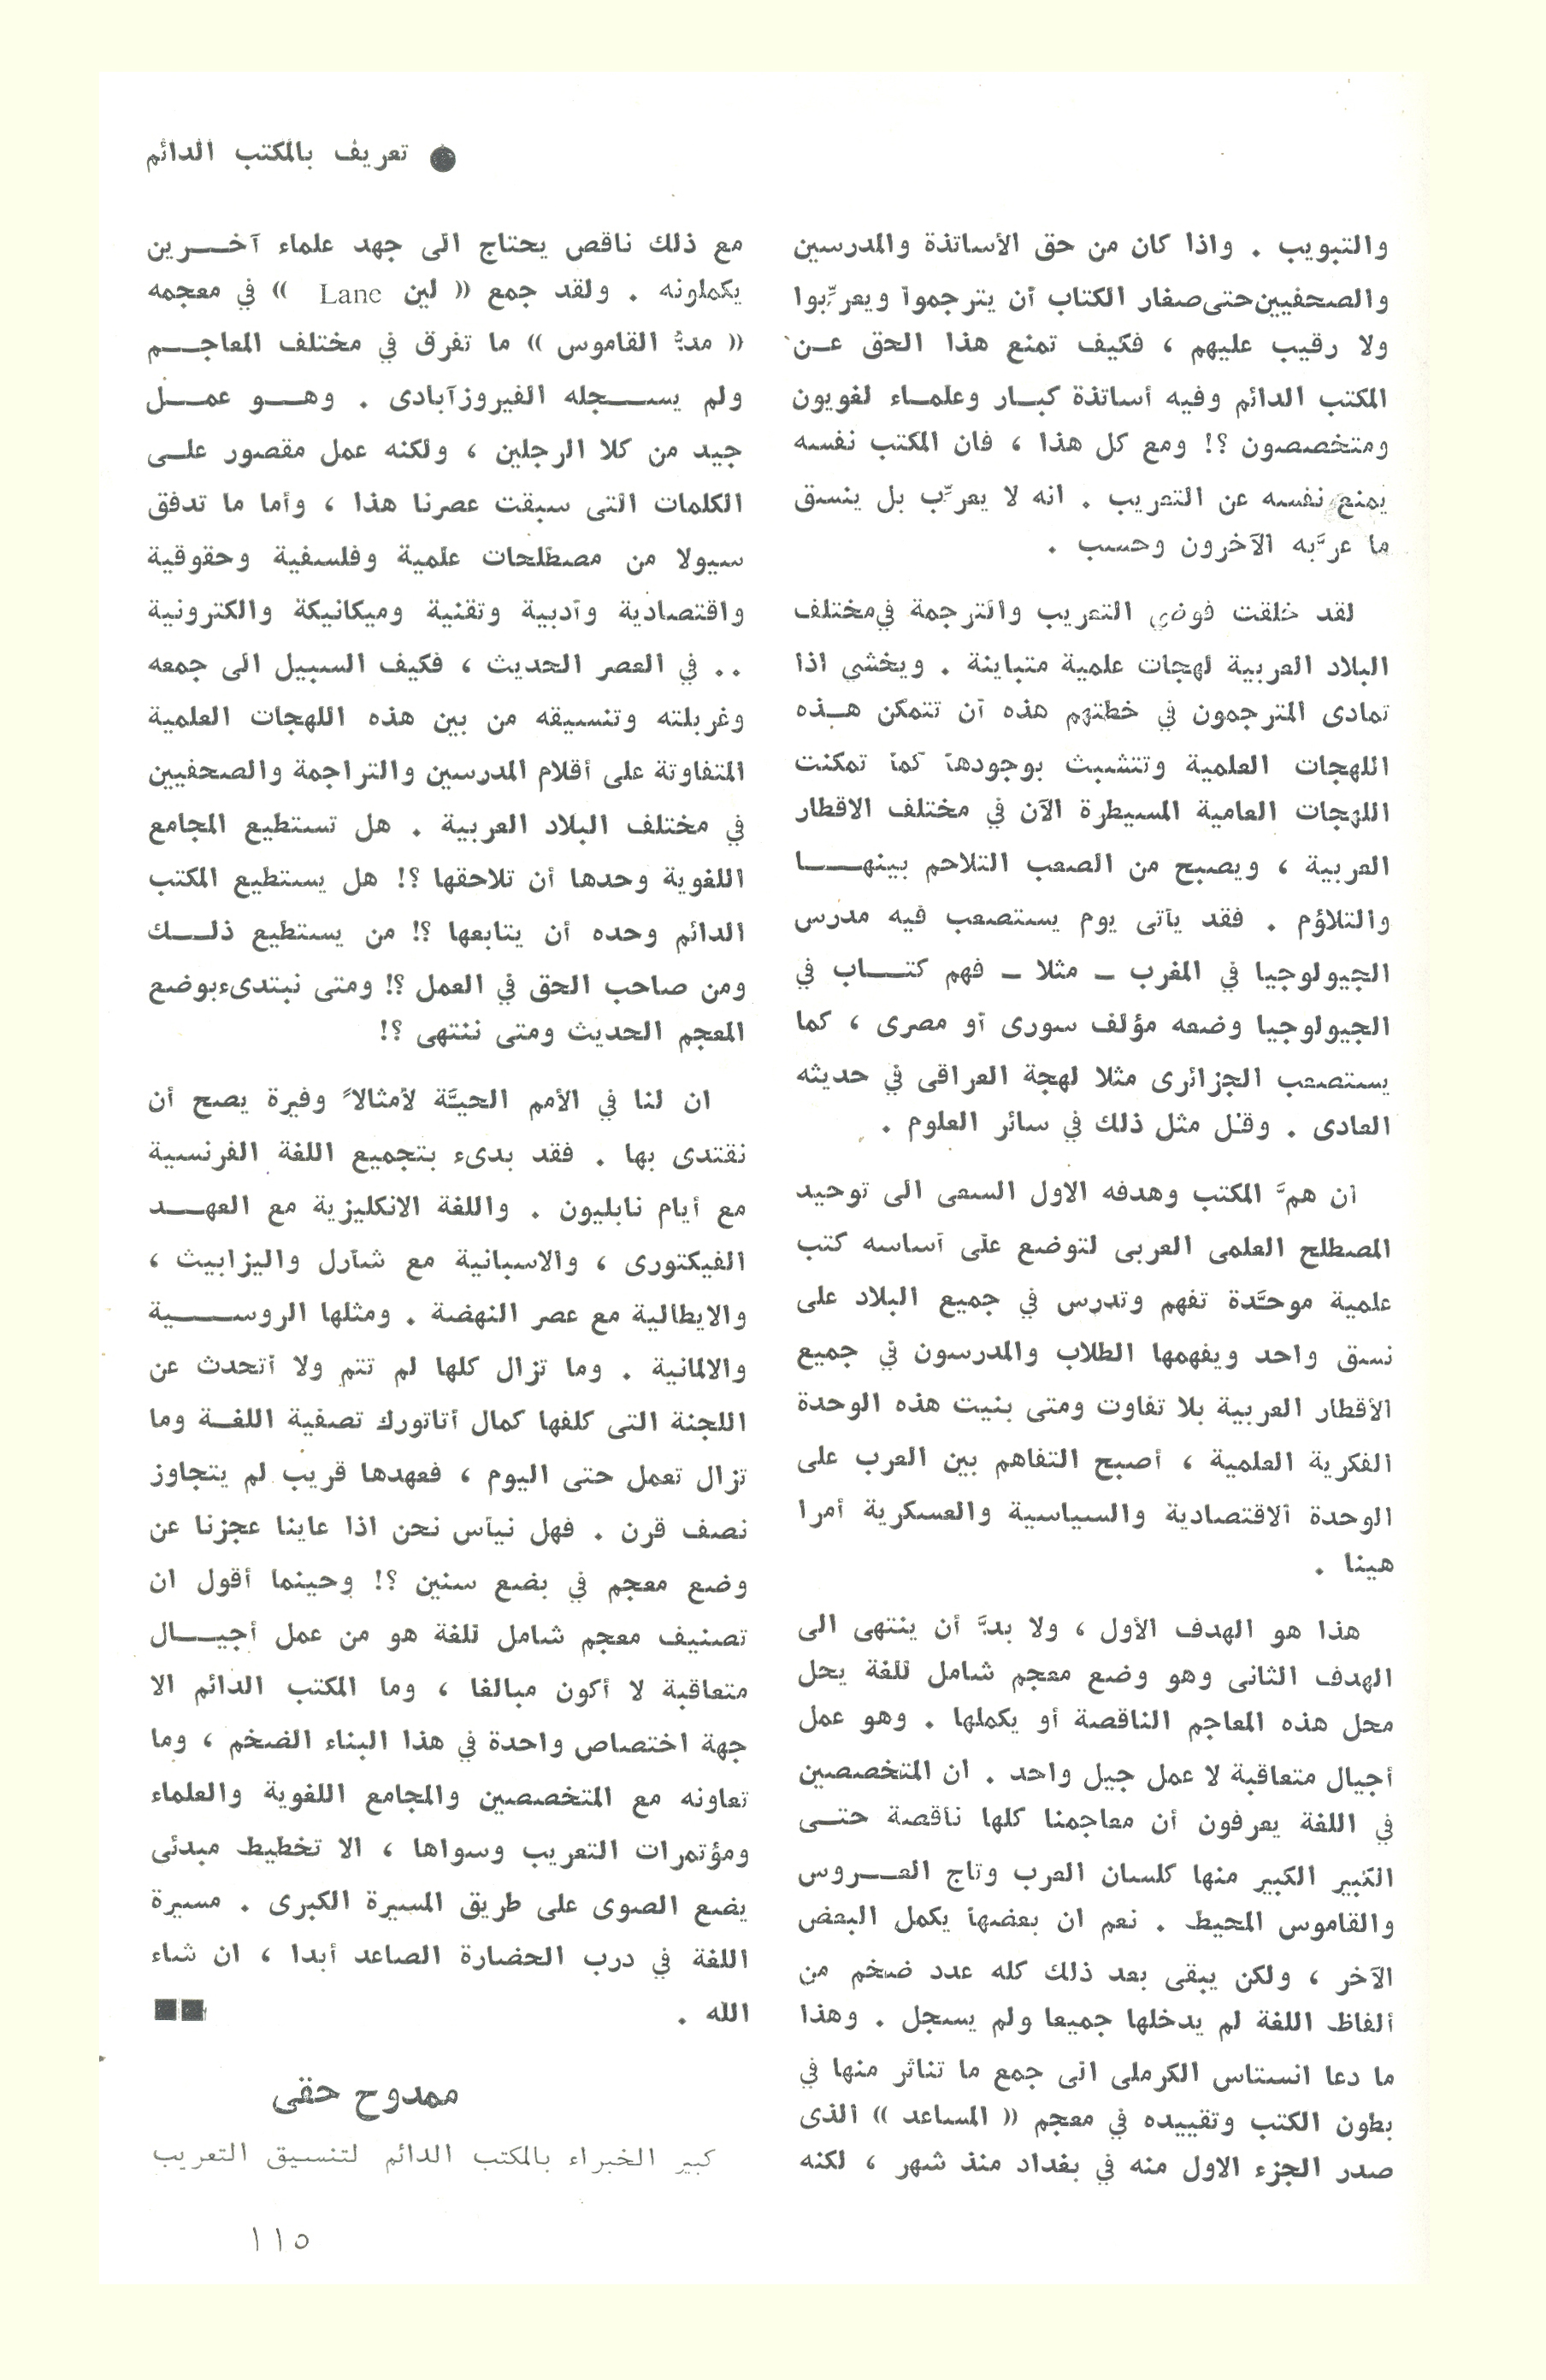 ● تعريف بالمكتب الدائم
والتبويب . واذا كان من حق الأساتذة والمدرسين
والصحفيين حتى صغار الكتاب أن يترجموا ويعرِّبوا
ولا رقيب عليهم ، فكيف تمنع هذا الحق عـن
المكتب الدائم وفيه أساتذة كبـار وعلمـاء لغويون
ومتخصصون ؟! ومع كل هذا ، فان المكتب نفسه
يمنع نفسه عن التعريب . انه لا يعرِّب بل ينسق
ما عرَّبه الآخرون وحسب .
لقد خلقت فوضى التعريب والترجمة في مختلف
البلاد العربية لهجات علمية متباينة . ويخشى اذا
تمادى المترجمون في خطتهم هذه أن تتمكن هـذه
اللهجات العلمية وتتشبث بوجودها كما تمكنت
اللهجات العامية المسيطرة الآن في مختلف الاقطار
العربية ، ويصبح من الصعب التلاحم بينهـــا
والتلاؤم . فقد يأتى يوم يستصعب فيه مدرس
الجيولوجيا في المغرب ــ مثلا ــ فهم كتـــاب في
الجيولوجيا وضعه مؤلف سورى أو مصرى ، كما
يستصعب الجزائرى مثلا لهجة العراقى في حديثه
العادى . وقل مثل ذلك في سائر العلوم .
ان همَّ المكتب وهدفه الاول السعى الى توحيد
المصطلح العلمى العربى لتوضع على أساسه كتب
علمية موحَّدة تفهم وتدرس في جميع البلاد على
نسق واحد ويفهمها الطلاب والمدرسون في جميع
الأقطار العربية بلا تفاوت ومتى بنيت هذه الوحدة
الفكرية العلمية ، أصبح التفاهم بين العرب على
الوحدة الاقتصادية والسياسية والعسكرية أمرا
هينا .
هذا هو الهدف الأول ، ولا بدَّ أن ينتهى الى
الهدف الثانى وهو وضع معجم شامل للغة يحل
محل هذه المعاجم الناقصة أو يكملها . وهو عمل
أجيال متعاقبة لا عمل جيل واحد . ان المتخصصين
في اللغة يعرفون أن معاجمنا كلها ناقصة حتـى
الكبير الكبير منها كلسان العرب وتاج العـــروس
والقاموس المحيط . نعم ان بعضها يكمل البعض
الآخر ، ولكن يبقى بعد ذلك كله عدد ضخم من
ألفاظ اللغة لم يدخلها جميعا ولم يسجل . وهذا
ما دعا انستاس الكرملى الى جمع ما تناثر منها في
بطون الكتب وتقييده في معجم (( المساعد )) الذى
صدر الجزء الاول منه في بغداد منذ شهر ، لكنه
مع ذلك ناقص يحتاج الى جهد علماء آخـــرين
يكملونه . ولقد جمع (( لين Lane )) في معجمه
(( مدُّ القاموس )) ما تفرق في مختلف المعاجـــم
ولم يســـجله الفيروزآبادى . وهـــو عمـــل
جيد من كلا الرجلين ، ولكنه عمل مقصور علـى
الكلمات التى سبقت عصرنا هذا ، وأما ما تدفق
سيولا من مصطلحات علمية وفلسفية وحقوقية
واقتصادية وأدبية وتقنية وميكانيكة والكترونية
.. في العصر الحديث ، فكيف السبيل الى جمعه
وغربلته وتنسيقه من بين هذه اللهجات العلمية
المتفاوتة على أقلام المدرسين والتراجمة والصحفيين
في مختلف البلاد العربية . هل تستطيع المجامع
اللغوية وحدها أن تلاحقها ؟! هل يستطيع المكتب
الدائم وحده أن يتابعها ؟! من يستطيع ذلـــك
ومن صاحب الحق في العمل ؟! ومتى نبتدىء بوضع
المعجم الحديث ومتى ننتهى ؟!
ان لنا في الأمم الحيَّة لأمثالاً وفيرة يصح أن
نقتدى بها . فقد بدىء بتجميع اللغة الفرنسية
مع أيام نابليون . واللغة الانكليزية مع العهـــد
الفيكتورى ، والاسبانية مع شارل واليزابيث ،
والايطالية مع عصر النهضة . ومثلها الروســـية
والالمانية . وما تزال كلها لم تتم ولا أتحدث عن
اللجنة التى كلفها كمال أتاتورك تصفية اللغـة وما
تزال تعمل حتى اليوم ، فعهدها قريب لم يتجاوز
نصف قرن . فهل نيأس نحن اذا عاينا عجزنا عن
وضع معجم في بضع سنين ؟! وحينما أقول ان
تصنيف معجم شامل للغة هو من عمل أجيـــال
متعاقبة لا أكون مبالغا ، وما المكتب الدائم الا
جهة اختصاص واحدة في هذا البناء الضخم ، وما
تعاونه مع المتخصصين والمجامع اللغوية والعلماء
ومؤتمرات التعريب وسواها ، الا تخطيط مبدئى
يضع الصوى على طريق المسيرة الكبرى . مسيرة
اللغة في درب الحضارة الصاعد أبدا ، ان شاء
الله . ■■
ممدوح حقى
كبير الخبراء بالمكتب الدائم لتنسيق التعريب
١١٥